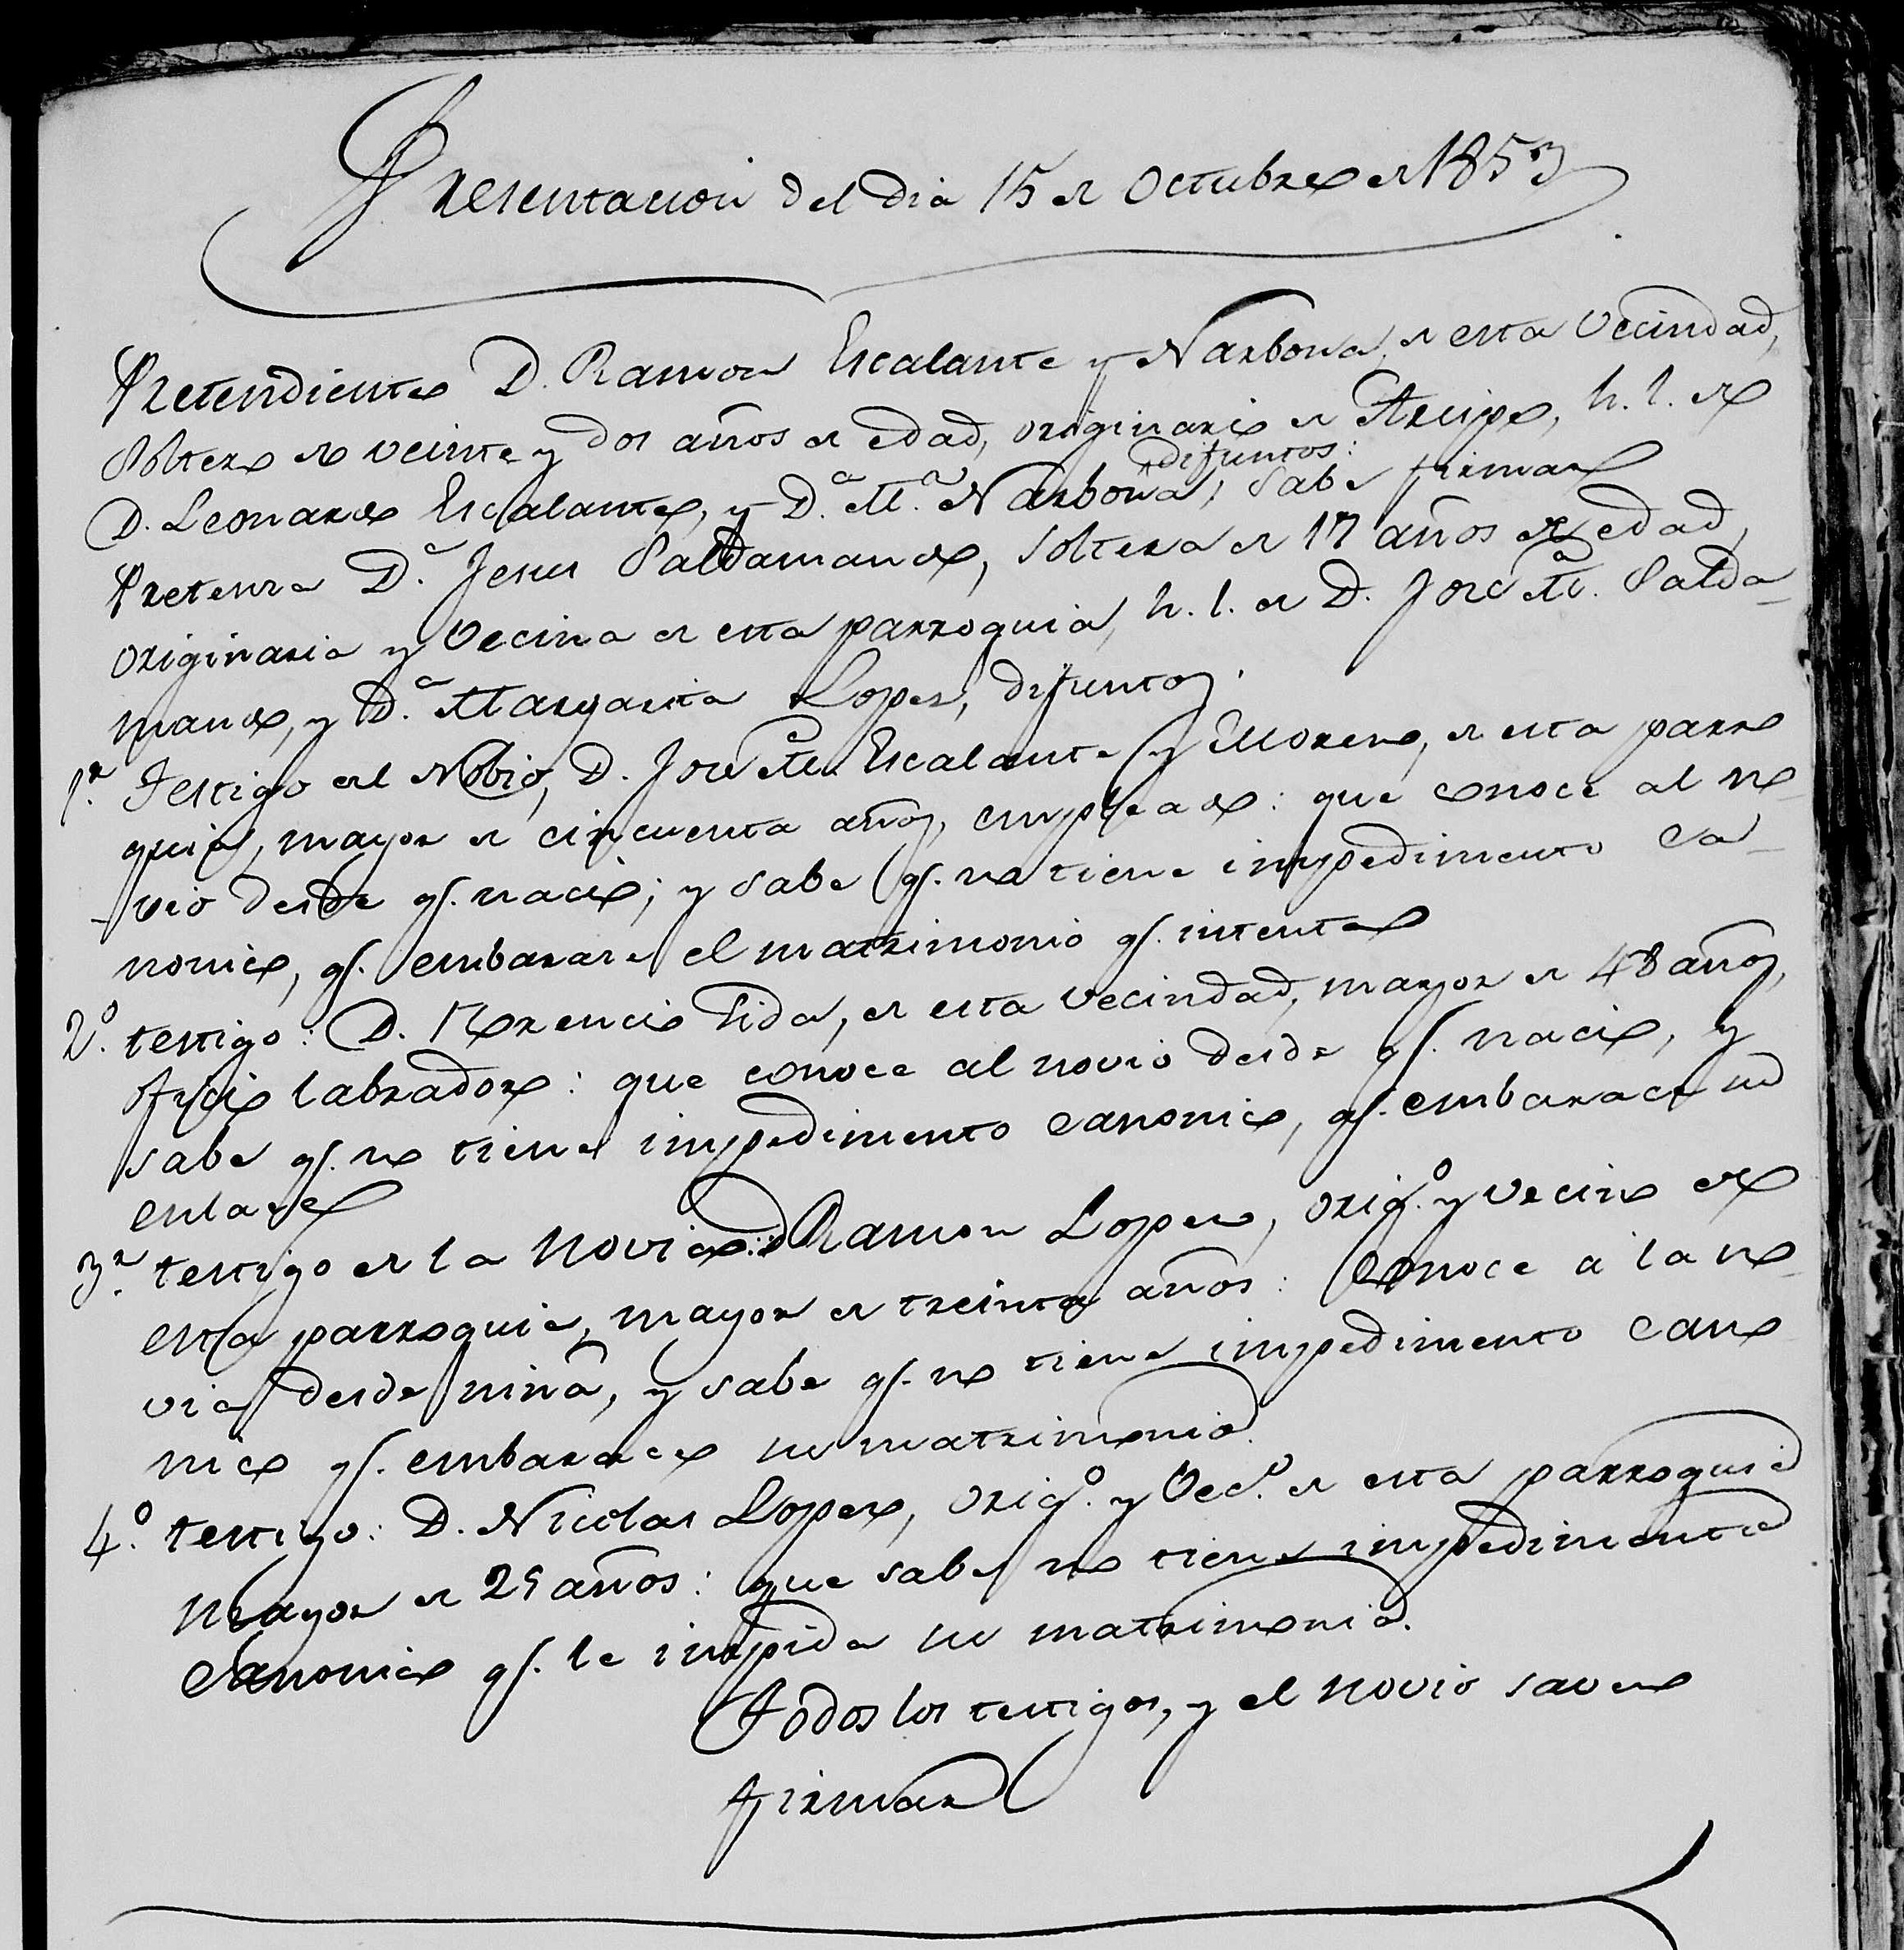 Presentacion del dia 15 de Octubre de 1853
Pretendiente D. Ramon Escalante y Narbona, de esta Vecindad,
Soltero de veinte y dos años de edad, originario de Arispe, h. l. de
difuntos:
D. Leonardo Escalante, y D.ª M.ª Narbona; Sabe firmar
Pretensa D.ª Jesus Saldamando, soltera de 17 años de edad,
originaria y Vecina de esta parroquia, h. l. de D. José M.ª Salda-
mando, y D.ª Margarita Lopez, difuntos.
1.r Testigo del Nobio, D. José M.ª Escalante y Moreno, de esta parro
quia, mayor de cincuenta años, empleado: que conoce al no-
-vio desde q.e nacio; y sabe q.e no tiene impedimento ca-
nonico, q.e embarase el matrimonio q.e intenta
2.º testigo: D. Florencio Lida, de esta vecindad, mayor de 48 años,
oficio labrador: que conoce al novio desde q.e nacio, y
sabe q.e no tiene impedimento canonico, q.e embarace su
enlase
3.r testigo de la Novia: D. Ramon Lopez, orig.º y vecino de
esta parroquia, mayor de treinta años: Conoce á la no-
via desde niña, y sabe q.e no tiene impedimento cano
nico q.e embarace su matrimonio.
4.º testigo: D. Nicolas Lopez, orig.º y Vec.º de esta parroquia
mayor de 25 años: que sabe no tiene impedimento
Canonico q.e le impida su matrimonio.
Todos los testigos, y el novio saven
firmar